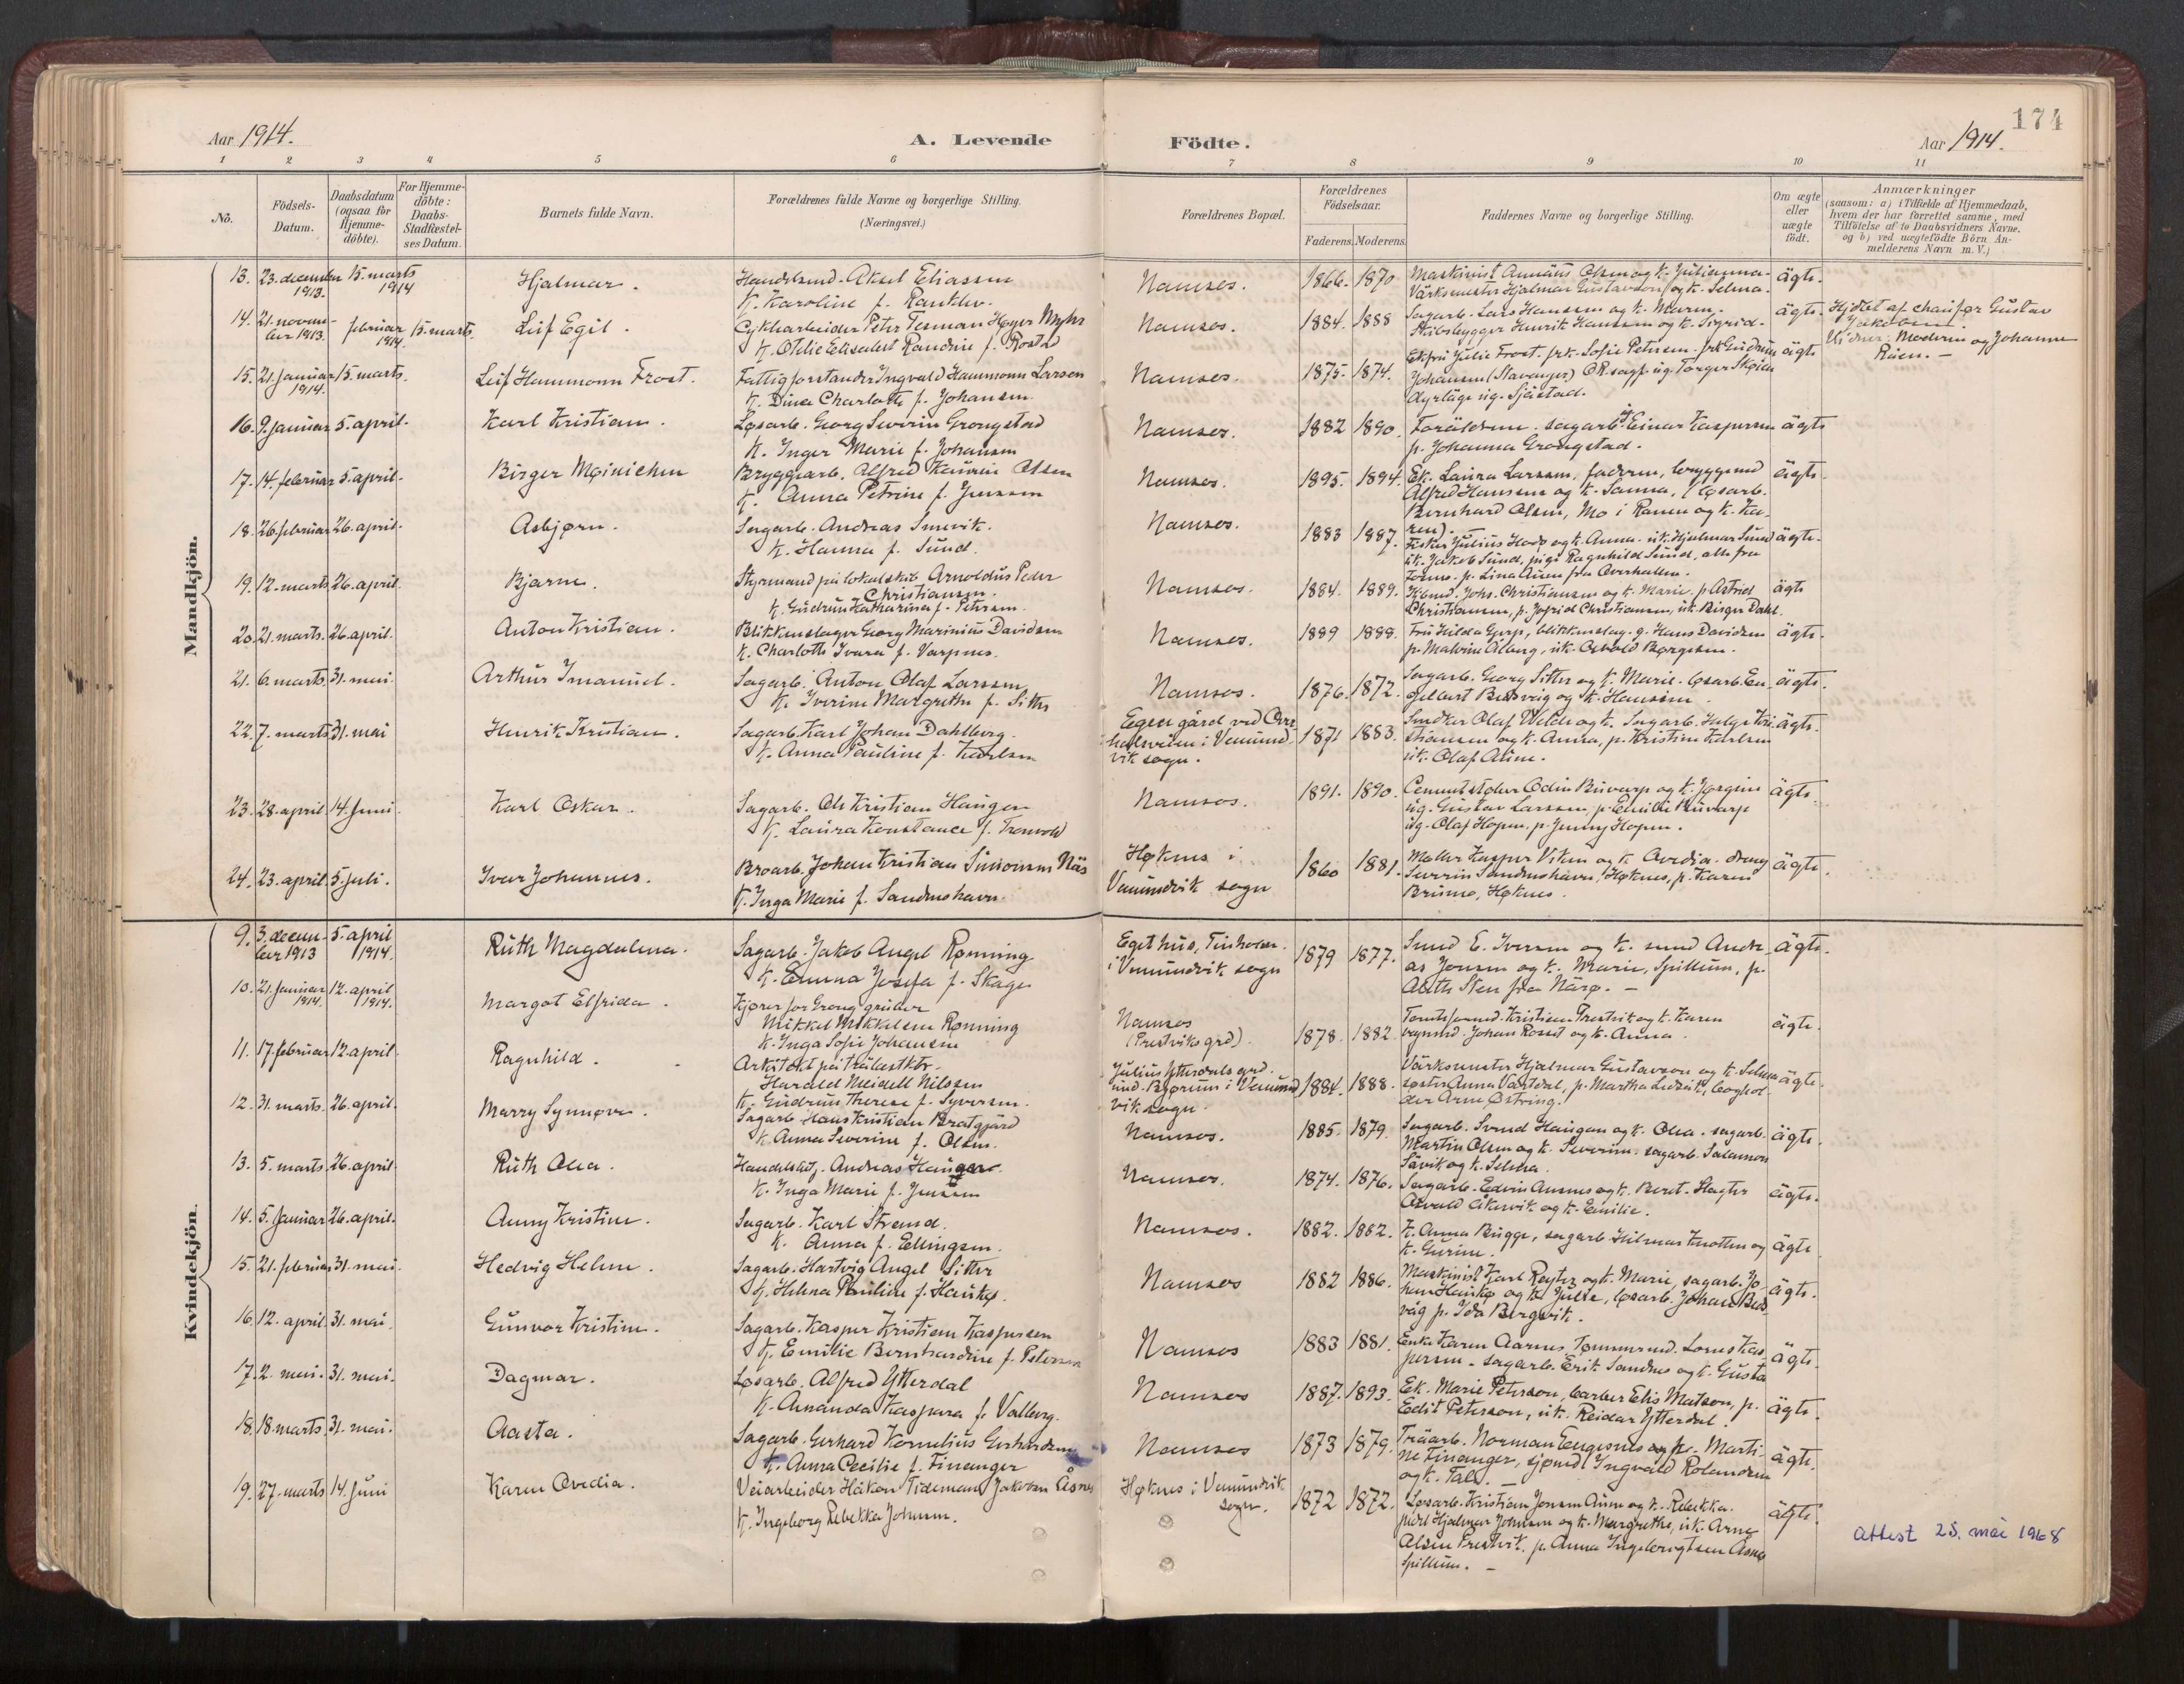 174
Aar 1914.
A. Levende
Födte.
Aar 1914.
1 2 3 4 5 6 7 8 9 10 11
No.
Födsels-
Datum.
Daabsdatum
(ogsaa for
Hjemme-
döbte).
For Hjemme-
döbte:
Daabs-
Stadfæstel-
ses Datum.
Barnets fulde Navn.
Forældrenes fulde Navne og borgerlige Stilling.
(Næringsvei.)
Forældrenes Bopæl.
Forældrenes
Födselsaar.
Faderens. Moderens.
Faddernes Navne og borgerlige Stilling.
Om ægte
eller
uægte
födt.
Anmærkninger
(saasom: a) i Tilfælde af Hjemmedaab,
hvem der har forrettet samme, med
Tilföielse af to Daabsvidners Navne.
og b) ved uægtefödte Börn An-
melderens Navn m. V.)
Mandkjön.
13. 23. december 1913. 15. marts 1914 Hjalmar.
Handelsmd. Aksel Eliassen
K. Karoline f. Ranklev.
Namsos. 1866. 1870
Maskinist Annäus Olsen og k. Julianna.
Värksmester Hjalmar Gustavson og k. Selma. ägte.
14. 21. november 1913. februar 1914. 15. marts. Leif Egil.
Cykkarbeider Peter Tesman Høyer Myhr
K. Othlie Elisabeth Randine f. Rostad
Namsos. 1884. 1888
Sagarb. Lars Hanssen og k. Maren.
Skibsbygger Henrik Hanssen og k. Sigrid. ägte.
Hjdbt af chaufør Gustav
Jakobsen.
Vidner: Moderen og Johanne
Råen. -
15. 21. januar 1914. 15. marts. Leif Hammonn Frost.
Fattigforstander Ingvald Hammonn Larsen
K. Dina Charlotte f. Johansen
Namsos. 1875. 1874.
Ek.fru Julie Frost. frk. Sofie Petersen. frk Gudrun
Johansen (Stavanger) OR.sagf. ug. Torger Skøien
dyrläge ug. Sjåstad. ägte
16. 9. januar 5. april. Karl Kristian.
Løsarb. Georg Severin Grongstad
K. Inger Marie f. Johansen
Namsos. 1882 1890.
Foräldrene. sagarb. Einar Kaspersen
p. Johanna Grongstad. ägte
17. 14. februar 5. april. Birger Møinichen
Bryggearb. Alfred Kaurin Olsen
K. Anna Petrine f. Jenssen
Namsos. 1895. 1894.
Ek. Laura Larssen, faderen, bryggemd
Alfred Hansen og k. Sanna, (løsarb.
Bernhard Olsen, Mo i Ranen og k. Ka-
ren). ägte.
18. 26 februar 26. april. Asbjørn.
Sagarb. Andreas Smevik.
K. Hanna f. Sund.
Namsos. 1883 1887.
Fisker Julius Hals og k. Anna. uk. Hjalmar Sund
uk. Jakob Sund, pige Ragnhild Sund, alle fra
p. Lina Auen fra Overhallen. ägte.
19. 12. marts. 26. april. Bjarne.
Styrmand på lokalskib Arnoldus Peder
Christiansen.
K. Gudrun Katharina f. Petersen.
Namsos. 1884. 1889.
Johs. Christiansen og k. Marie. p. Astrid
Christiansen, p. Jofrid Christiansen, uk. Birger Dahl. ägte
20. 21. marts. 26 april. Anton Kristian.
Blikkenslager Georg Marinius Davidsen
K. Charlotte Ivara f. Varpnes.
Namsos. 1889 1888.
Fru Hilda, blikkenslag. g. Hans Davidsen
p. Malvine Alberg, uk. Osvald Børgesen. ägte.
21. 6. marts. 31. mai. Arthur Imanuel.
Sagarb. Anton Olaf Larssen
K. Iverine Margrethe f. Sitter
Namsos. 1876. 1872.
Sagarb. Georg Sitter og k. Marie. løsarb. En-
gelbert Bedsvåg og k. Hansine. ägte.
22. 7. marts 31. mai Henrik Kristian.
Sagarb. Karl Johan Dahlberg.
K. Anna Pauline f. Karlsen
Egen gård ved Over
halsveien i Vemund-
vik sogn. 1871 1883.
Snedker Olaf Welde og k. Sagarb. Helge Kri-
stiansen og k. Anna, p. Kristine Karlsen
uk. Olaf Aline. ägte.
23. 28. april. 14. juni. Karl Oskar.
Sagarb. Ole Kristian Haugen
K. Laura Konstance f. Tranvold
Namsos. 1891. 1890.
Cementstøber Odin Buvarp og k. Jørgine
ug. Gustav Larssen, p. Emilie Buvarp
ug. Olaf Hopen. p. Jenny Hopen. ägte.
24. 23. april. 5. juli. Ivar Johannes.
Broarb. Johan Kristian Simonsen Näs
K. Inga Marie f. Sandneshavn.
Høknes i
Vemundvik sogn 1860 1881.
Møller Kasper Viken og k. Ovedia. dreng
Severin Sandneshavn, Høknes, p. Karen
Brismo, Høknes. ägte.
Kvindekjön.
9. 3. decem-
ber 1913 5. april 1914. Ruth Magdalena.
Sagarb. Jakob Angel Rønning
K. Emma Josefa f. Skage
Eget hus, Tiurholm
i Vemundvik sogn 1879 1877.
Smed E. Iversen og k. smed Andre-
as Jensen og k. Marie, Spillum, p.
Aleth Sten fra Närø. - ägte.
10. 21. januar 1914. 12. april 1914. Margot Elfrida.
Kjører for Grong gruber
Mikkel Mikkelsen Rønning
K. Inga Sofie Johansen
Namsos
(Prestviks grd). 1878. 1882
Tomteformd. Kristian Prestvik og k. Karen
Johan Rosset og k. Anna. ägte.
11. 17. februar 12. april. Ragnhild.
Arkitekt på trälastktr.
Harald Meidell Nilssen
K. Gudrun Therese f. Syversen.
Julius Ytterdals grd.
und. Bjørum i Vemund
vik sogn. 1884. 1888.
Värksmester Hjalmar Gustavson og k. Selma
søster Anna Vartdal, p. Martha, boghol-
der Arne Østring. ägte.
12. 31. marts. 26. april. Marry Synnøve.
Sagarb. Hans Kristian Bratgjärd
K. Anna Severine f. Olsen.
Namsos. 1885. 1879.
Sagarb. Svend Haugan og k. Olea. sagarb.
Martin Olsen og k. Severine. sagarb. Salamon
Sävik og k. Selma. ägte.
13. 5. marts 26. april. Ruth Olea.
Handelsbetj. Andreas Haugen
K. Inga Marie f. Jenssen
Namsos. 1874. 1876.
Sagarb. Edvin Aunes og k. Beret. Slagter
Osvald Åkervik og k. Emilie. ägte.
14. 5. januar 26. april. Anny Kristine.
Sagarb. Karl Strømd.
K. Anna f. Ellingsen.
Namsos. 1882. 1882.
K. Anna Brügge, sagarb Hilmar Knotten og
k. Gurine. ägte
15. 21. februar 31. mai. Hedvig Helene.
Sagarb. Hartvig Angel Sitter
K. Helena Pauline f. Hauskø.
Namsos 1882 1886.
Maskinist Karl Reyter og k. Marie, sagarb. Jo-
han Hauskø og k. Julie, løsarb. Johan Beds-
våg p. Ida Bergvik. ägte.
16. 12. april. 31. mai. Gunvor Kristine.
Sagarb. Kasper Kristian Kaspersen
K. Emilie Bernhardine f. Petersen
Namsos 1883 1881.
Enke Karen Aarnes Tømmermd. Lorns Kas-
persen. sagarb. Erik Sandnes og k. Gusta ägte.
17. 2. mai. 31. mai. Dagmar.
Løsarb. Alfred Ytterdal
K. Amanda Kaspara f. Valberg.
Namsos 1887. 1893.
Ek. Marie Peterson, barber Elis Matson, p.
Edit Peterson, uk. Reidar Ytterdal. ägte.
18. 18. marts. 31. mai. Aasta.
Sagarb. Gerhard Kornelius Gerhardsen
K. Anna Cecilie f. Finanger
Namsos 1873 1879.
Träarb. Norman Engesnes og k. Marti-
ne Finanger, sjømd Ingvald Rolandsen
og k. Tale. - ägte.
19. 27. marts 14. juni Karen Ovedia.
Veiarbeider Håkon Tideman Jakobsen Åsnes
K. Ingeborg Rebekka Johnsen.
Høknes i Vemundvik
sogn. 1872 1872.
Løsarb. Kristian Jensen Aune og k. Rebekka.
Hjalmar Johnsen og k. Margrethe, uk. Arne
Olsen Prestvik, p. Anna Ingebrigtsen Åsnes
Spillum. - ägte.
Attest 25. mai 1968